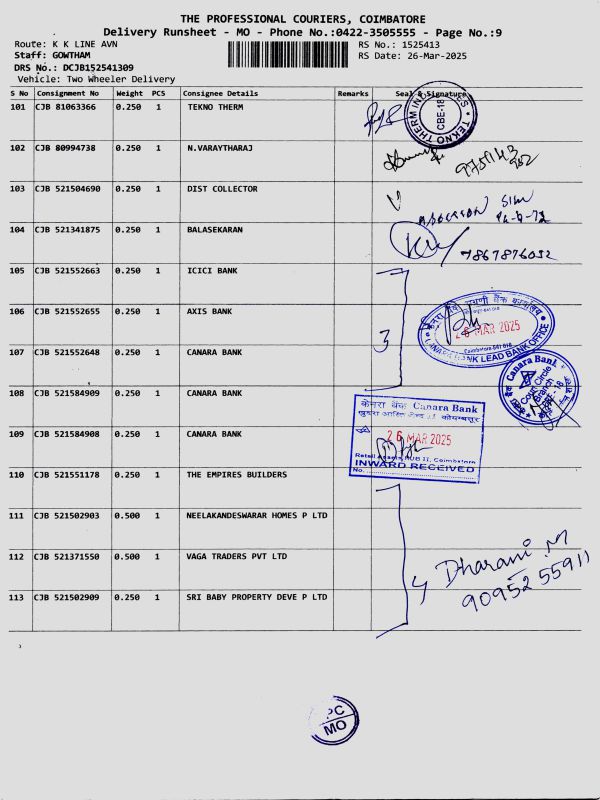 THE PROFESSIONAL COURIERS, COIMBATORE
Delivery Runsheet - MO - Phone No.:0422-3505555 - Page No.:9
Route: K K LINE AVN
RS No.: 1525413
Staff: GOWTHAM
RS Date: 26-Mar-2025
DRS No.: DCJB152541309
Vehicle: Two Wheeler Delivery
S No Consignment No Weight PCS Consignee Details Remarks Seal & Signature
101 CJB 81063366 0.250 1 TEKNO THERM
TEKNO THERM IND
CBE-18
102 CJB 80994738 0.250 1 N.VARAYTHARAJ
103 CJB 521504690 0.250 1 DIST COLLECTOR
104 CJB 521341875 0.250 1 BALASEKARAN
7867876032
105 CJB 521552663 0.250 1 ICICI BANK
106 CJB 521552655 0.250 1 AXIS BANK
26 MAR 2025
LEAD BANK OFFICE
107 CJB 521552648 0.250 1 CANARA BANK
3
Canara Bank
Court Circle
Branch
108 CJB 521584909 0.250 1 CANARA BANK
केनरा बैंक Canara Bank
109 CJB 521584908 0.250 1 CANARA BANK
26 MAR 2025
Retail Assets HUB II, Coimbatore
INWARD RECEIVED
No.
110 CJB 521551178 0.250 1 THE EMPIRES BUILDERS
111 CJB 521502903 0.500 1 NEELAKANDESWARAR HOMES P LTD
112 CJB 521371550 0.500 1 VAGA TRADERS PVT LTD
4 Dharani M
90952 55911
113 CJB 521502909 0.250 1 SRI BABY PROPERTY DEVE P LTD
PC
MO